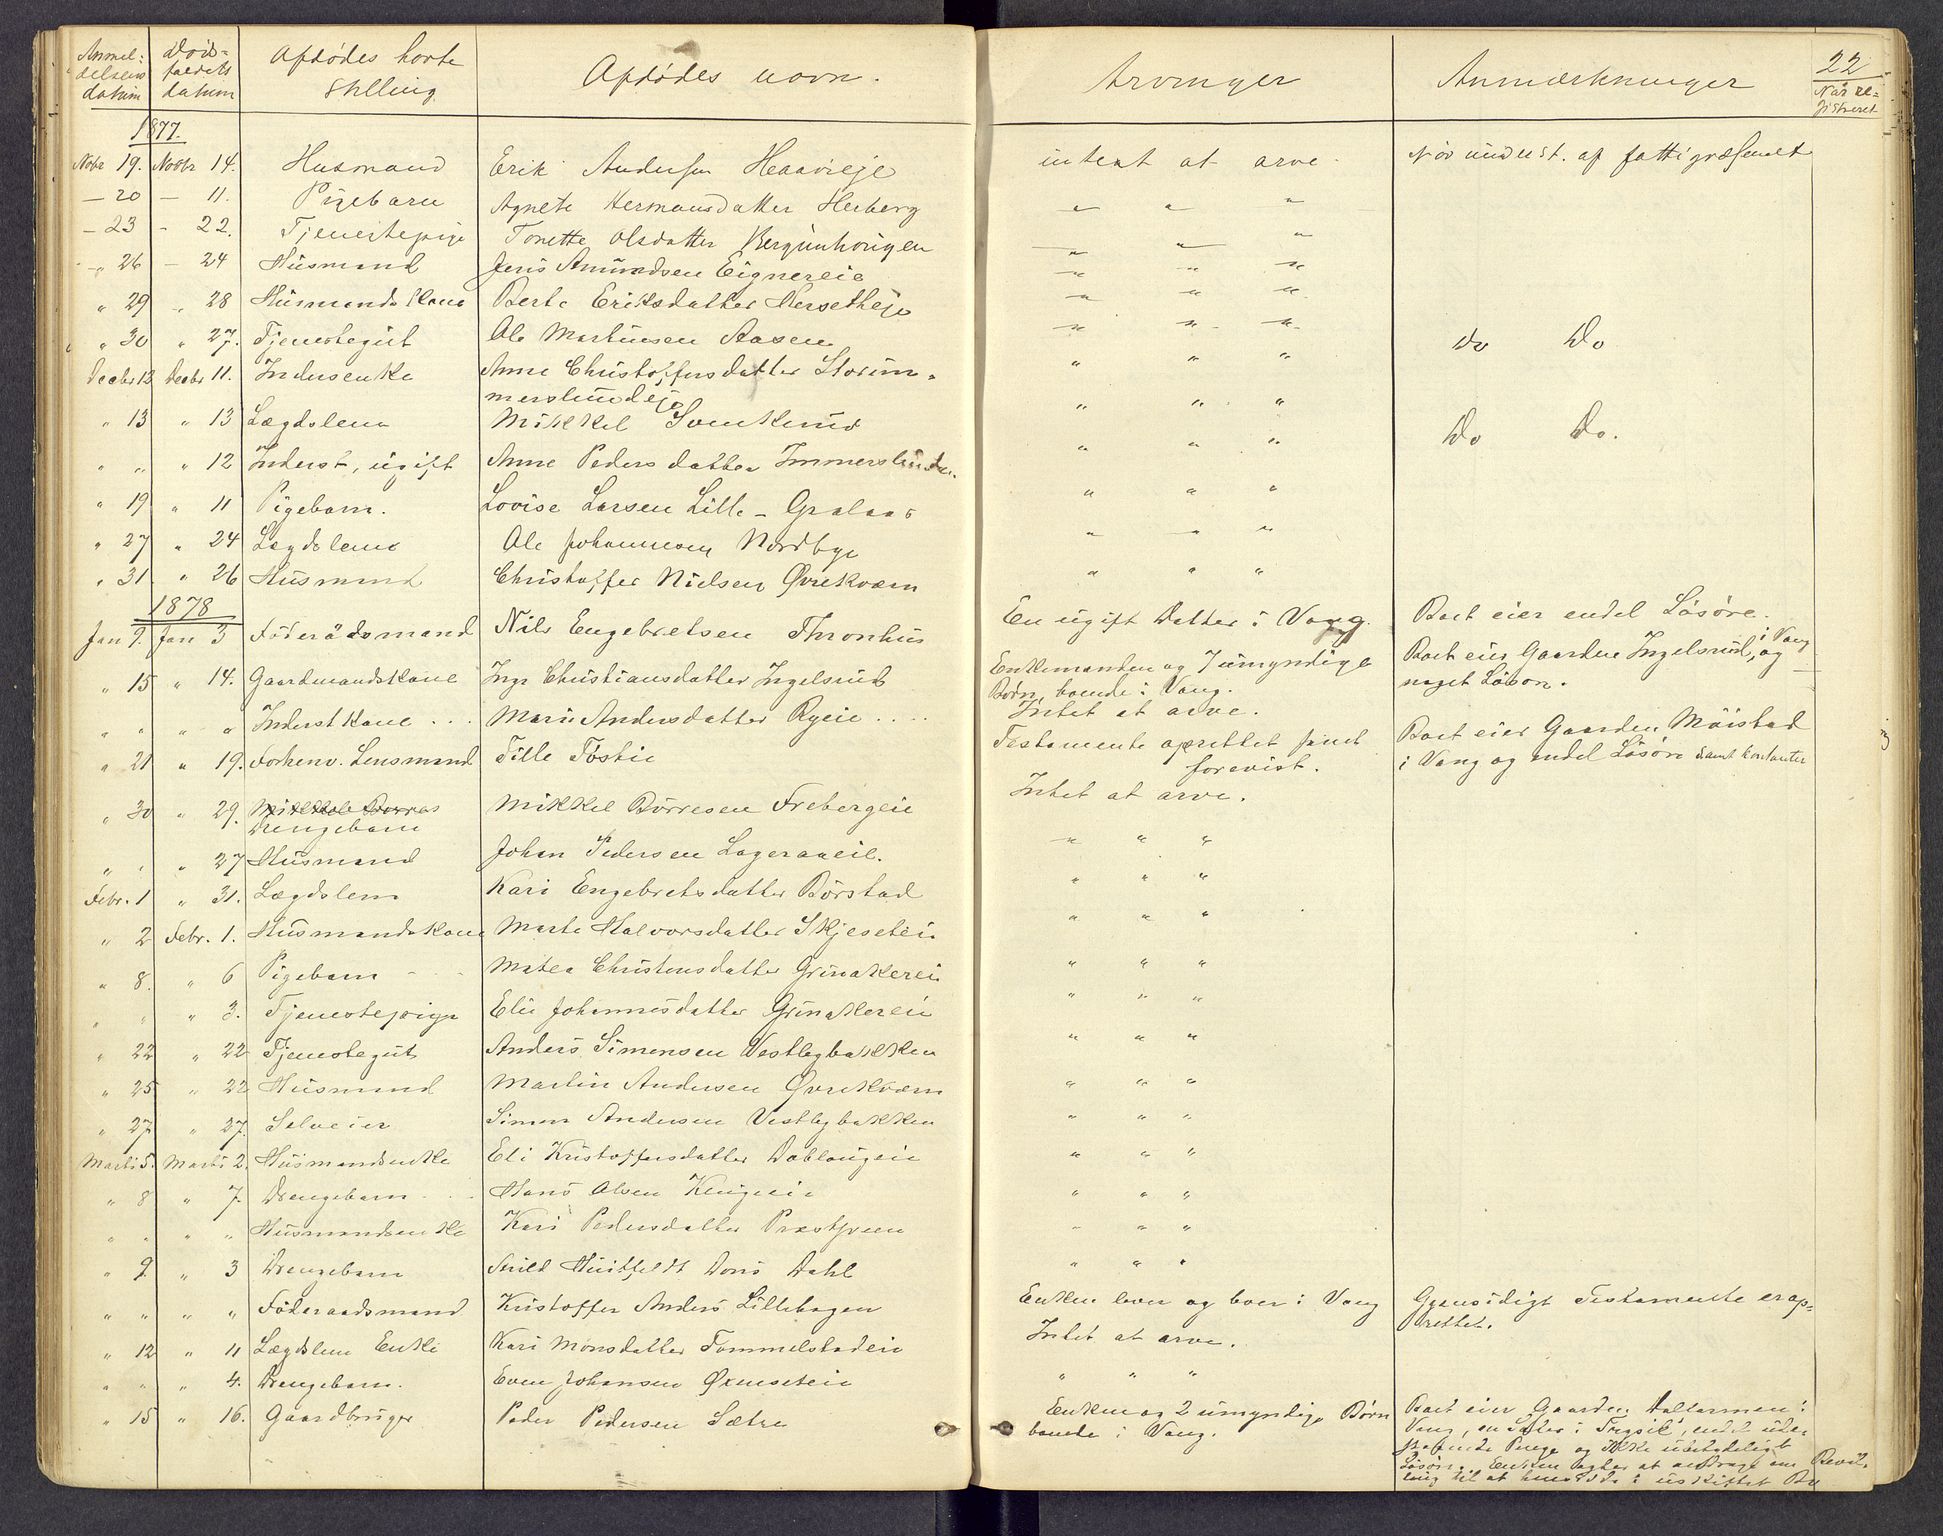 Anmeldelsens datum | Dødsfaldets datum | Afdødes korte Stilling | Afdødes navn. | Arvinger | Anmærkninger | 22 Når registreret
1877.
Novbr 19. Novbr 14. Husmand Erik Andersen Heaavieje intext at arve. Nöd underst. af fattigvæsenet
— 20 — 11. Pigebarn Agnete Hermansdatter Herberg — " "
— 23 - 22. Tjenestepige Tonette Olsdatter Berginhougen — " "
" 26 — 24 Husmand Jens Amundsen Eignereie " " "
" 29 " 28 Husmands Kone Berte Eriksdatter Hersetheje " " "
" 30 " 27. Tjenestegut Ole Martinsen Aasen " " " Do Do
Decbr 12 Decbr 11. Inderstenke Anne Christoffersdatter Storim-
merslundeje " " "
" 13 " 13 Lægdslem Mikkel Svenkerud " " " Do Do.
" " " 12 Inderst, ugift Anne Pedersdatter Immerslunde " " "
" 19 " 11 Pigebarn. Lovise Larsen Lille-Gralaas " " "
" 27 " 24 Lægdslem Ole Johannesen Nordbye " " "
" 31. " 26 Husmand Christoffer Nielsen Øvrekværn " " "
1878
Jan 9. Jan 3 Föderådsmand Nils Engebretsen Thronhus En ugift Datter i Vang. Boet eier endel Lösöre.
" 15 " 14. Gaardmandskone Inge Christiansdatter Ingelsrud Enkemanden og 7 umyndige Børn, boende i Vang. Boet eier Gaarden Ingelsrud, i Vang og noget Lösöre.
" " " " Inderstkone . . . Marie Andersdatter Ryeie . . . . Intet at arve.
" 21 " 19. Forhenv. Lensmand Tille Töstie Testamente oprettet forevist. Boet eier Gaarden Möistad i Vang og endel Lösöre samt kontanter
" 30 " 29. Drengebarn Mikkel Börresen Frebergeie Intet at arve.
" " " 27 Husmand Johan Pedersen Lageraaeie. " " "
Febr. 1 " 31. Lægdslem Kari Engebretsdatter Börstad " " "
" 2 Febr. 1. Husmandskone Marte Halvorsdatter Skjeseteie " " "
" 8. " 6 Pigebarn Matea Christensdatter Grinakereie " " "
" " " 3. Tjenestepige Elie Johannesdatter Grinakereie " " "
" 22 " 22 Tjenestegut Anders Simensen Vestlybakken " " "
" 25 " 22 Husmand Martin Andersen Øvrekværn " " "
" 27 " 27. Selveier Simen Andersen Vestlybakken " " "
Marts 5. Marts 2. Husmandsenke Eli Kristoffersdatter Doblougeie " " "
" 8 " 7. Drengebarn Hans Olsen Kengseie " " "
" " " " Husmandsenke Kari Pedersdatter Præstgreen " " "
" 9 " 3 Drengebarn Huitfeldt Dons Dahl " " "
" " " " Föderaadsmand Kristoffer Anders. Lillehagen Enken lever og boer i Vang Gjensidigt Testamente er op-
rettet.
" 12 " 11 Lægdslem Enke Kari Monsdatter Tommelstadeie Intet at arve.
" " " 4. Drengebarn. Even Johansen Øxenseteie " " "
" 15 " 16. Gaardbruger Peder Pedersen Sætre Enken og 2 umyndige Børn boende i Vang. Boet eier Gaarden i
Vang, en Sæter i Trysil, endel ude-
staaende Penge og ikke ubetydeligt
Lösöre. Enken agter at andrage om Bevil-
ling til at hensidde i uskiftet Bo